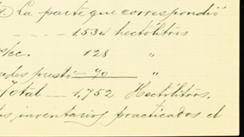 la parte que correspondió
1534 hectolitros
128 "
90 "
Total — 1,752 Hectolitros.
inventarios practicados el